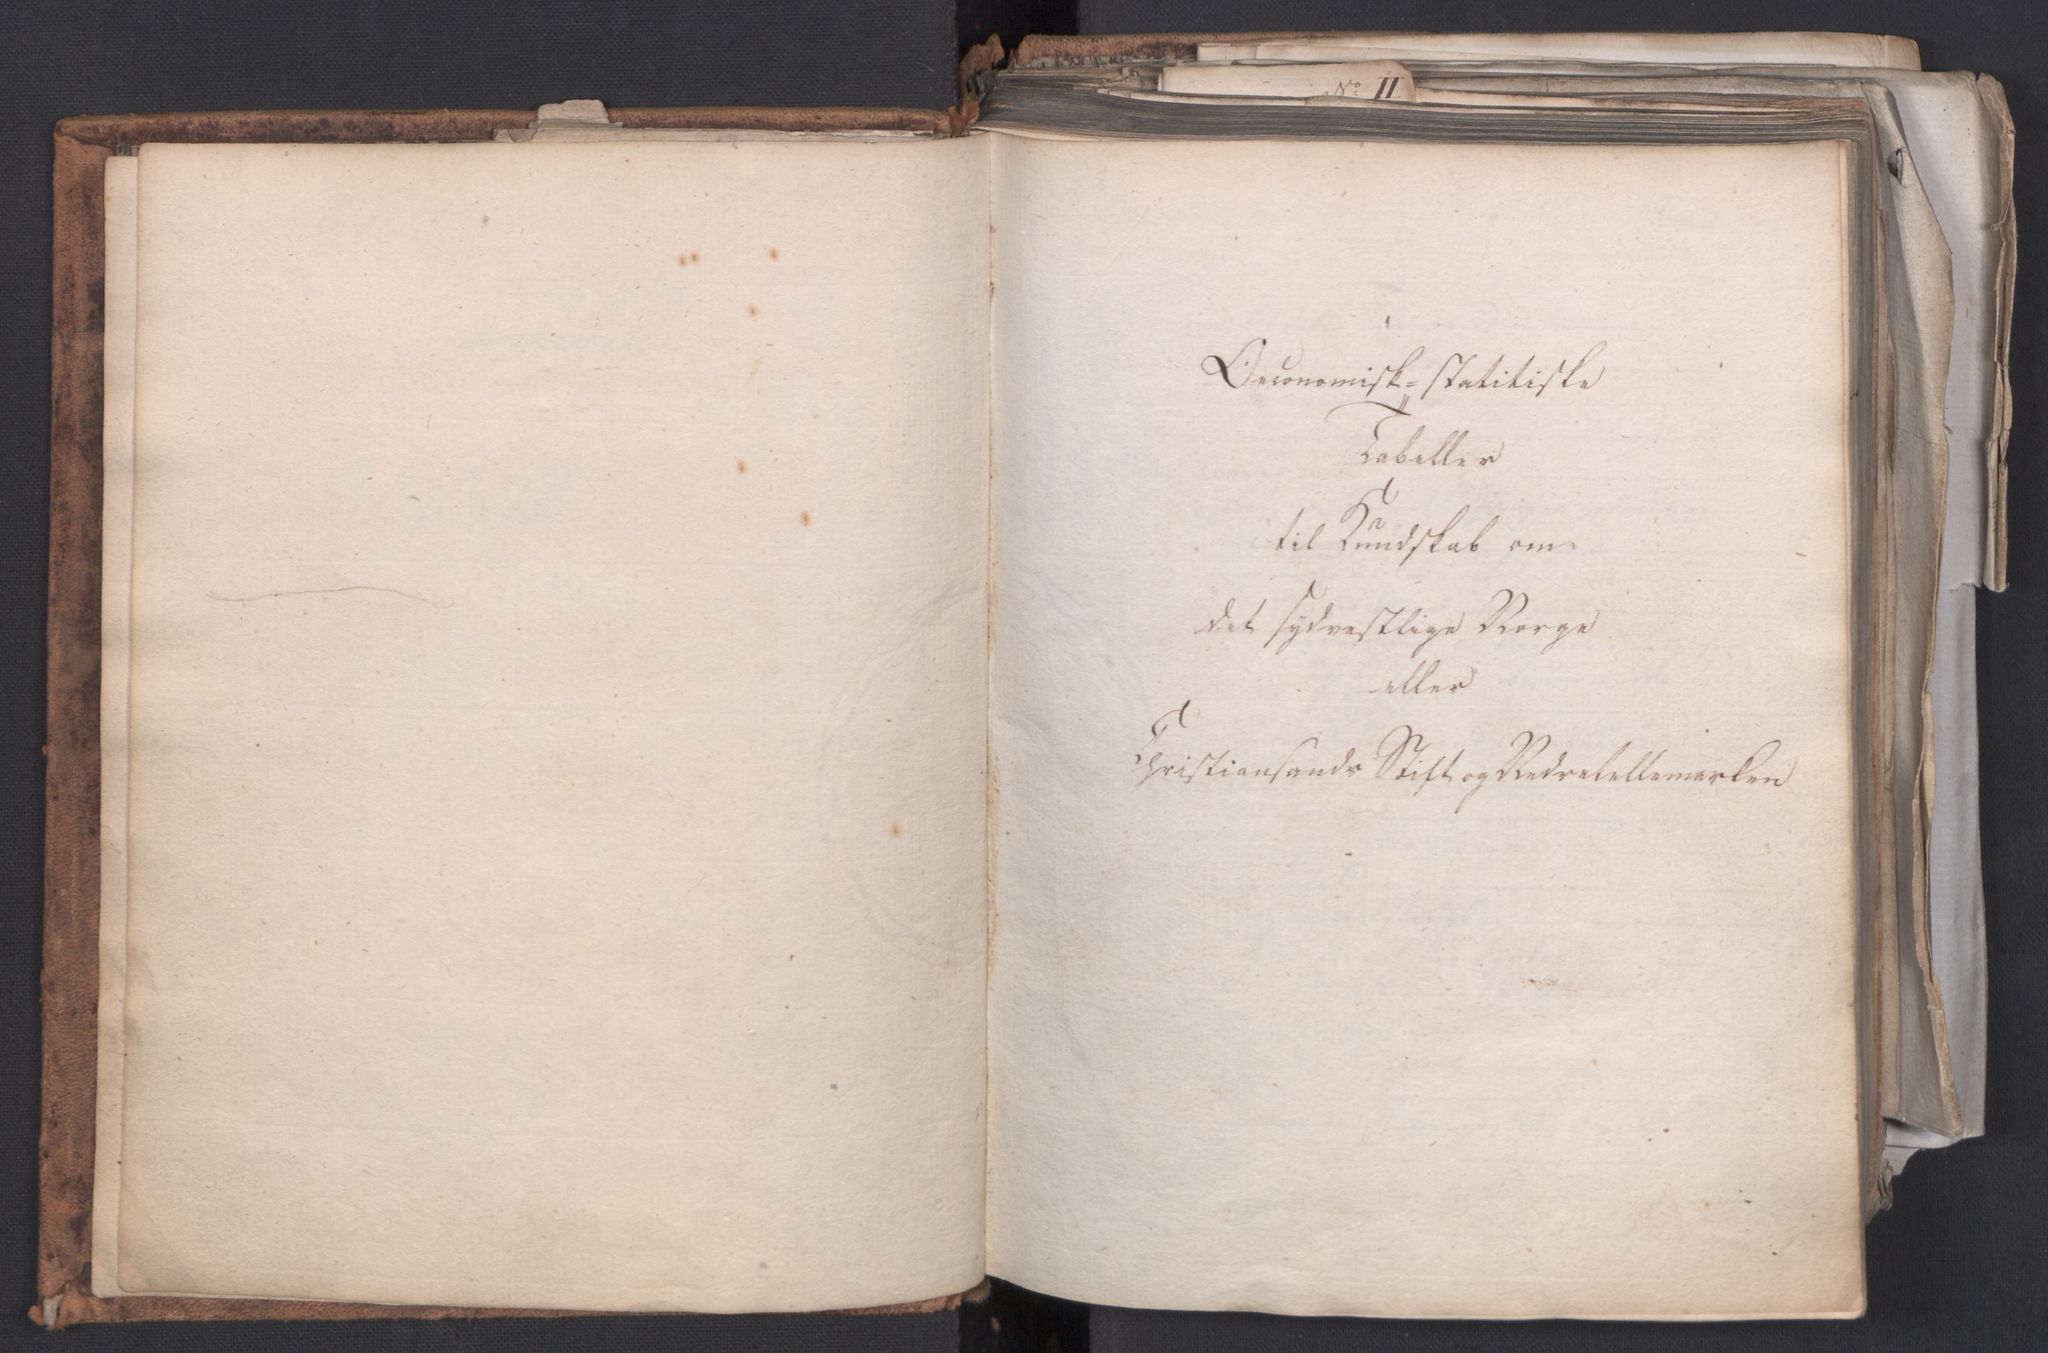 No II
Oeconomisk-statitiske
Tabeller
til Kundskab om
det sydvestlige Norge
eller
Christiansands Stift og Nedretellemarken